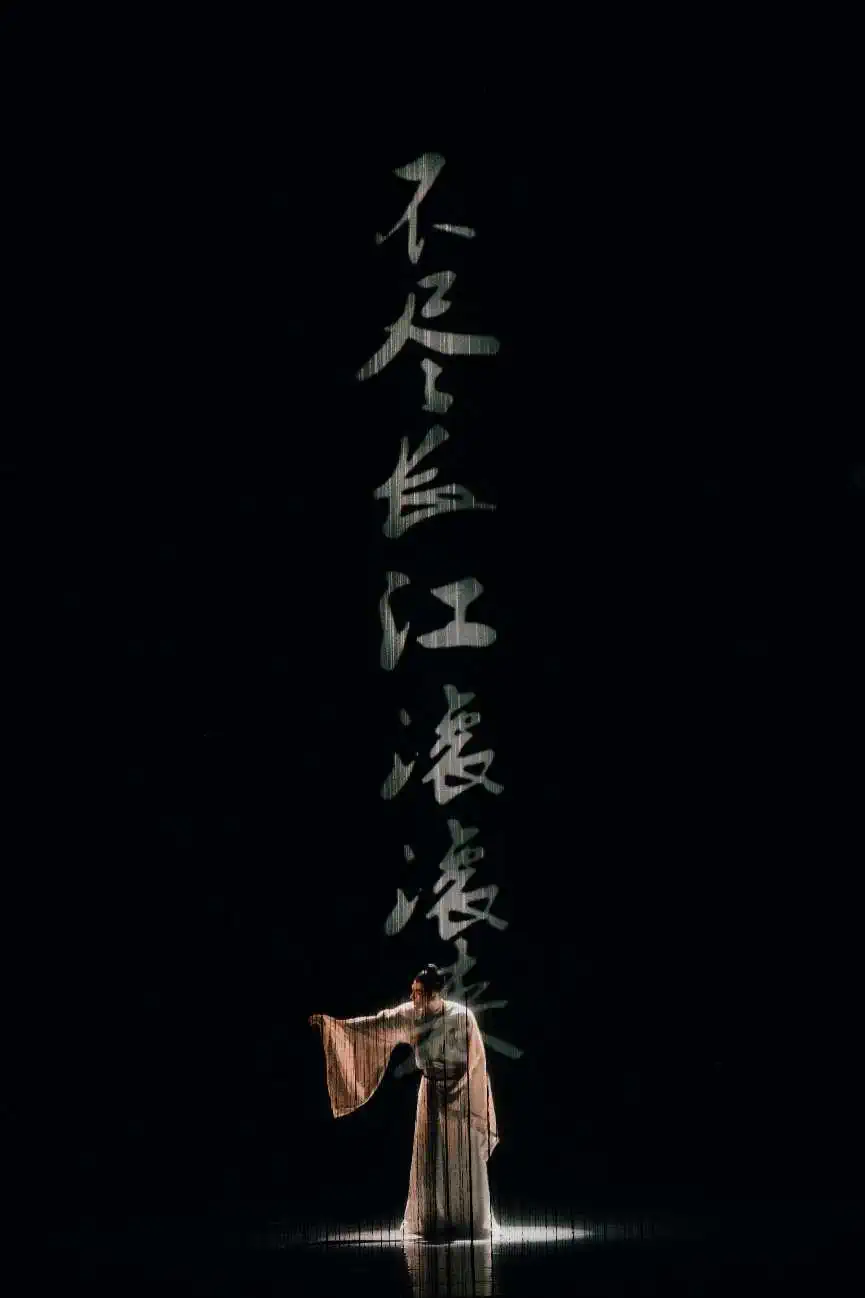 不尽长江滚滚来